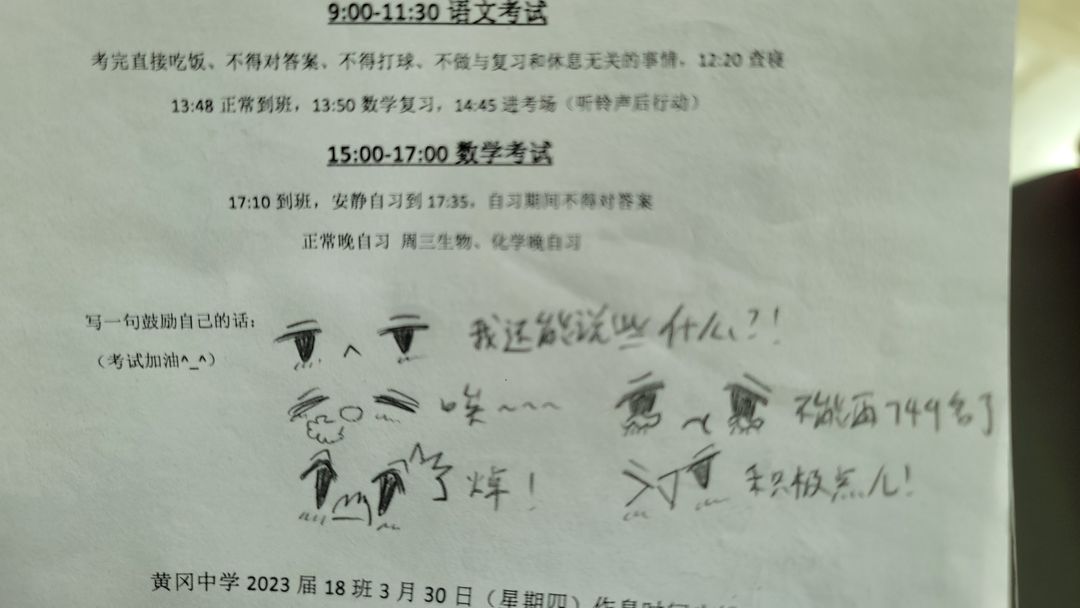 9:00-11:30 语文考试
考完直接吃饭、不得对答案、不得打球、不做与复习和休息无关的事情，12:20 查寝
13:48 正常到班，13:50 数学复习，14:45 进考场（听铃声后行动）
15:00-17:00 数学考试
17:10 到班，安静自习到 17:35，自习期间不得对答案
正常晚自习 周三生物、化学晚自习
写一句鼓励自己的话：
我还能说些什么？！
（考试加油^_^）
唉~~~
不能再749名了
焯！
积极点儿！
黄冈中学 2023 届 18 班 3 月 30 日（星期四）作息时间